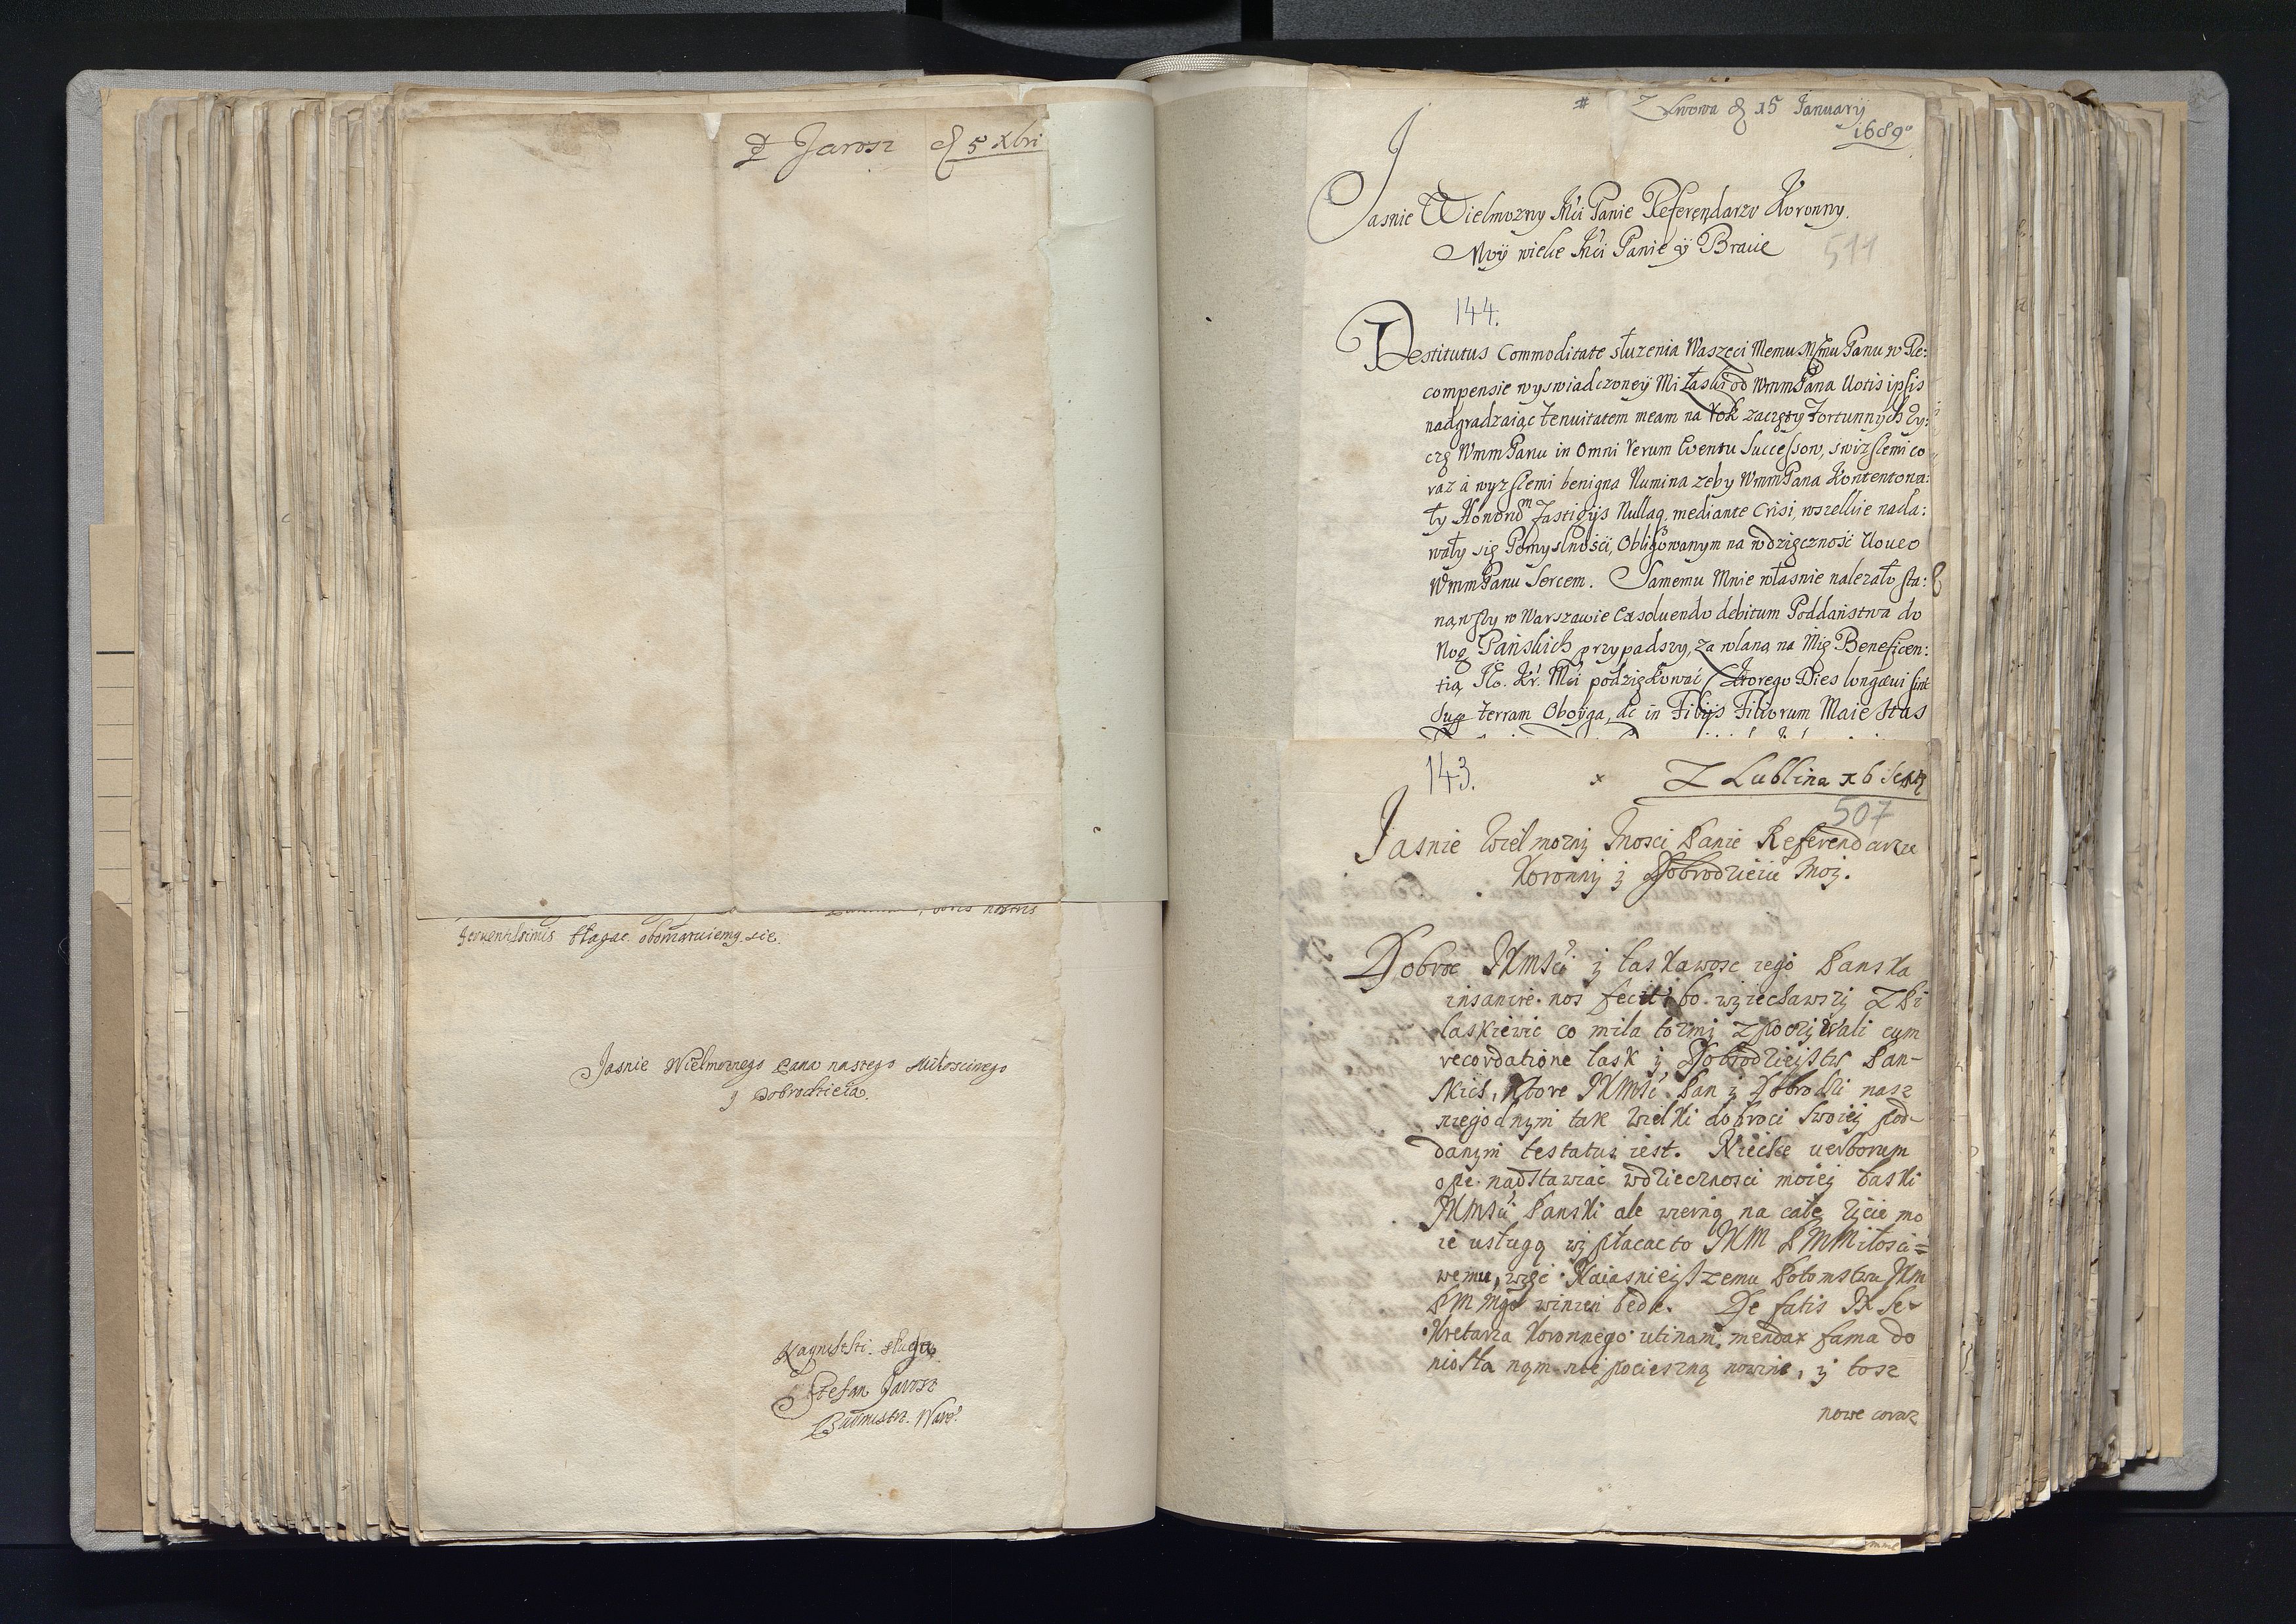 P Jarosz d 5 Xbri
fervenissimis błagac obowiązuiemy się.
Jasnie Wielmoznego Pana naszego Miłosciwego
y Dobrodzieia.
Naynizsi słudzy
Stefan Jarosz
Burmistrz Warec.
# Z Lwowa d 15 January
1689
Jasnie Wielmozny Mći Panie Referendarzu Koronny.
Moy wielce Mći Panie ÿ Bracie
511
144.
Destitutus Commoditate słuzenia Waszeci Memu Msmu Panu w Re:
compensie wyswiadczoneÿ Mi łaski od WmmPana Uotis ipsis
nadgradzaiąc tenuitatem meam na Rok zaczęty Fortunnych zy:
czę WmmPanu in Omni Rerum Eventu Successow, swirslemi co
raz a wyzslemi benigna Numina zeby WmmPana Kontentowa:
ły Honorum Fastigÿs Nullaq mediante Crisi, wszelkie nada:
wały się Pomyslnosći, Obligowanym na wdzięcznosć Uoueo
WmmPanu Sercem. Samemu Mnie własnie nalezało sta:
nąwszy w Warszawie Exsoluendo debitum Poddaństwa do
Nog Pańskich przypadszy, za wlaną na Mię Beneficen:
tią JKo. Kr. Mći podziękować (Ktorego Dies longæui sint
Sup terram Oboÿga, ac in Filÿs Filiorum Maiestas
143.
x Z Lublina x6
507
Jasnie Wielmozny Mosci Panie Referendarzu
Koronny y Dobrodzieiu Moy.
Dobroc JKMSći y łaskawosc iego Panska
insanire nos fecit, bo wyiechawszy ZPi
laskiewic co mila to my zpoczywali cum
recordatione łask y Dobrodzieystw Pan-
skich, Ktore JKMSć Pan y Dobrodzi nasz
niegodnym tak wielki dobroci swoiey pod-
danym testatus iest. Niechce uerborum
ope nadstawiac wdziecznosci moiey łaski
JKMSći Panski ale wierną na całe zycie mo
ie usługą wypłacac to JKM PMMiłosci=
wemu, więc Naiasnieyszemu Potomstwu JKm
PMMgo winien bede. De fatis JX Se-
kretarza Koronnego utinam mendax fama do
niosła nąm nie pocieszną nowine, y tosz
nowe coraz